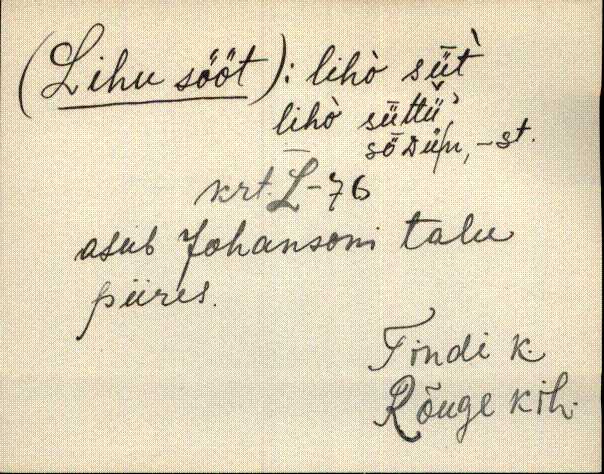 (Lihu sööt): lihò süt̀
lihò süttü̆,
sȫDü/n, -st.
krt. L-76
asub Johansoni talu
piires.
Tindi k.
Rõuge kih.